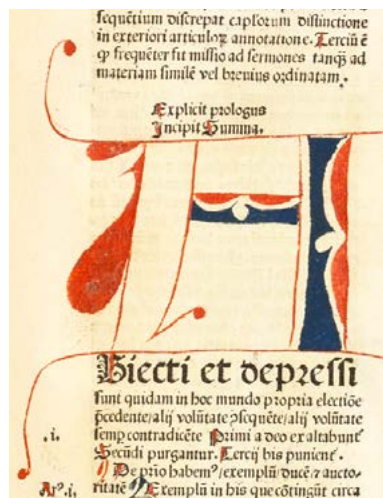 sequẽtium discrepat capl'orum distinctione
in exteriori articuloꝝ annotatione. Terciũ ẽ
ꝙ frequẽter fit missio ad sermones tanꝙ̃ ad
materiam similẽ vel breuius ordinatam.
Explicit prologus
Incipit Summa.
A
Biecti et depressi
sunt quidam in hoc mundo propria electiõe
p̃cedente/alij volũtate ꝓsequẽte/alij volũtate
semꝑ contradicẽte Primi a deo exaltabunt̃
.i.
Secũdi purgantur. Tercij his punient̃.
De p̃o habemꝰ/exemplũ/ducẽ⁊ aucto-
Arᵒ.i.
ritatẽ Exemplũ in his que cõtingũt circa